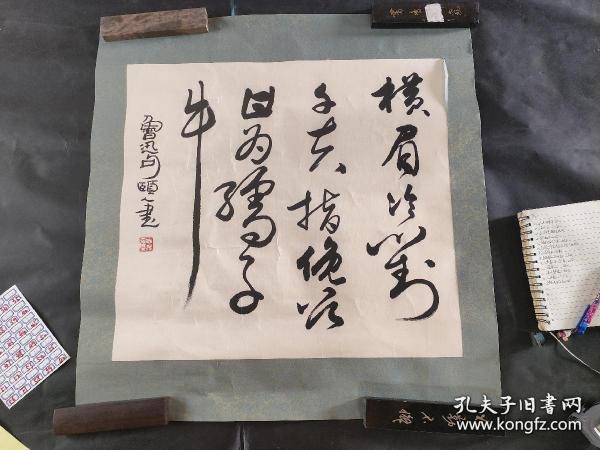 橫眉冷對
千夫指俛首
甘为孺子
牛
魯迅句頤書
孔夫子旧书网
www.kongfz.com